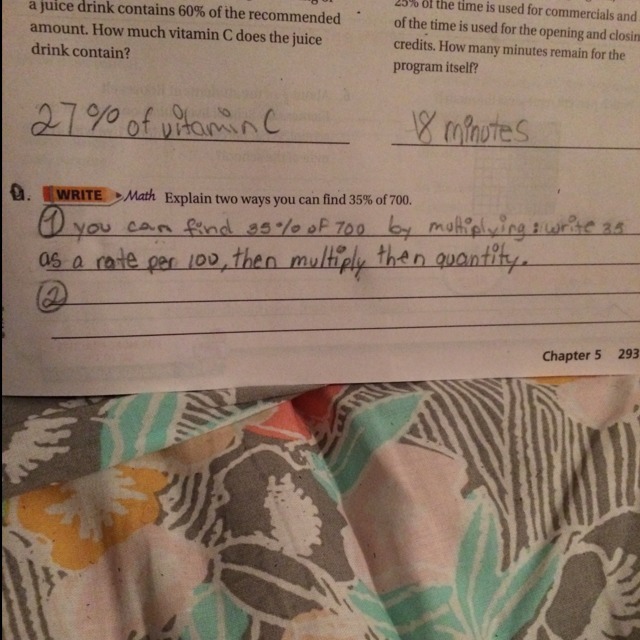 a juice drink contains 60% of the recommended
amount. How much vitamin C does the juice
drink contain?
27% of vitamin C
25% of the time is used for commercials and
of the time is used for the opening and closin
credits. How many minutes remain for the
program itself?
18 minutes
WRITE Math Explain two ways you can find 35% of 700.
① you can find 35% of 700 by multiplying: write 35
as a rate per 100, then multiply then quantity.
②
Chapter 5 293